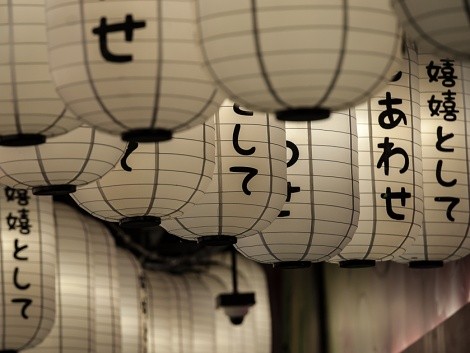 せ
嬉嬉として
として
あわせ
嬉嬉として